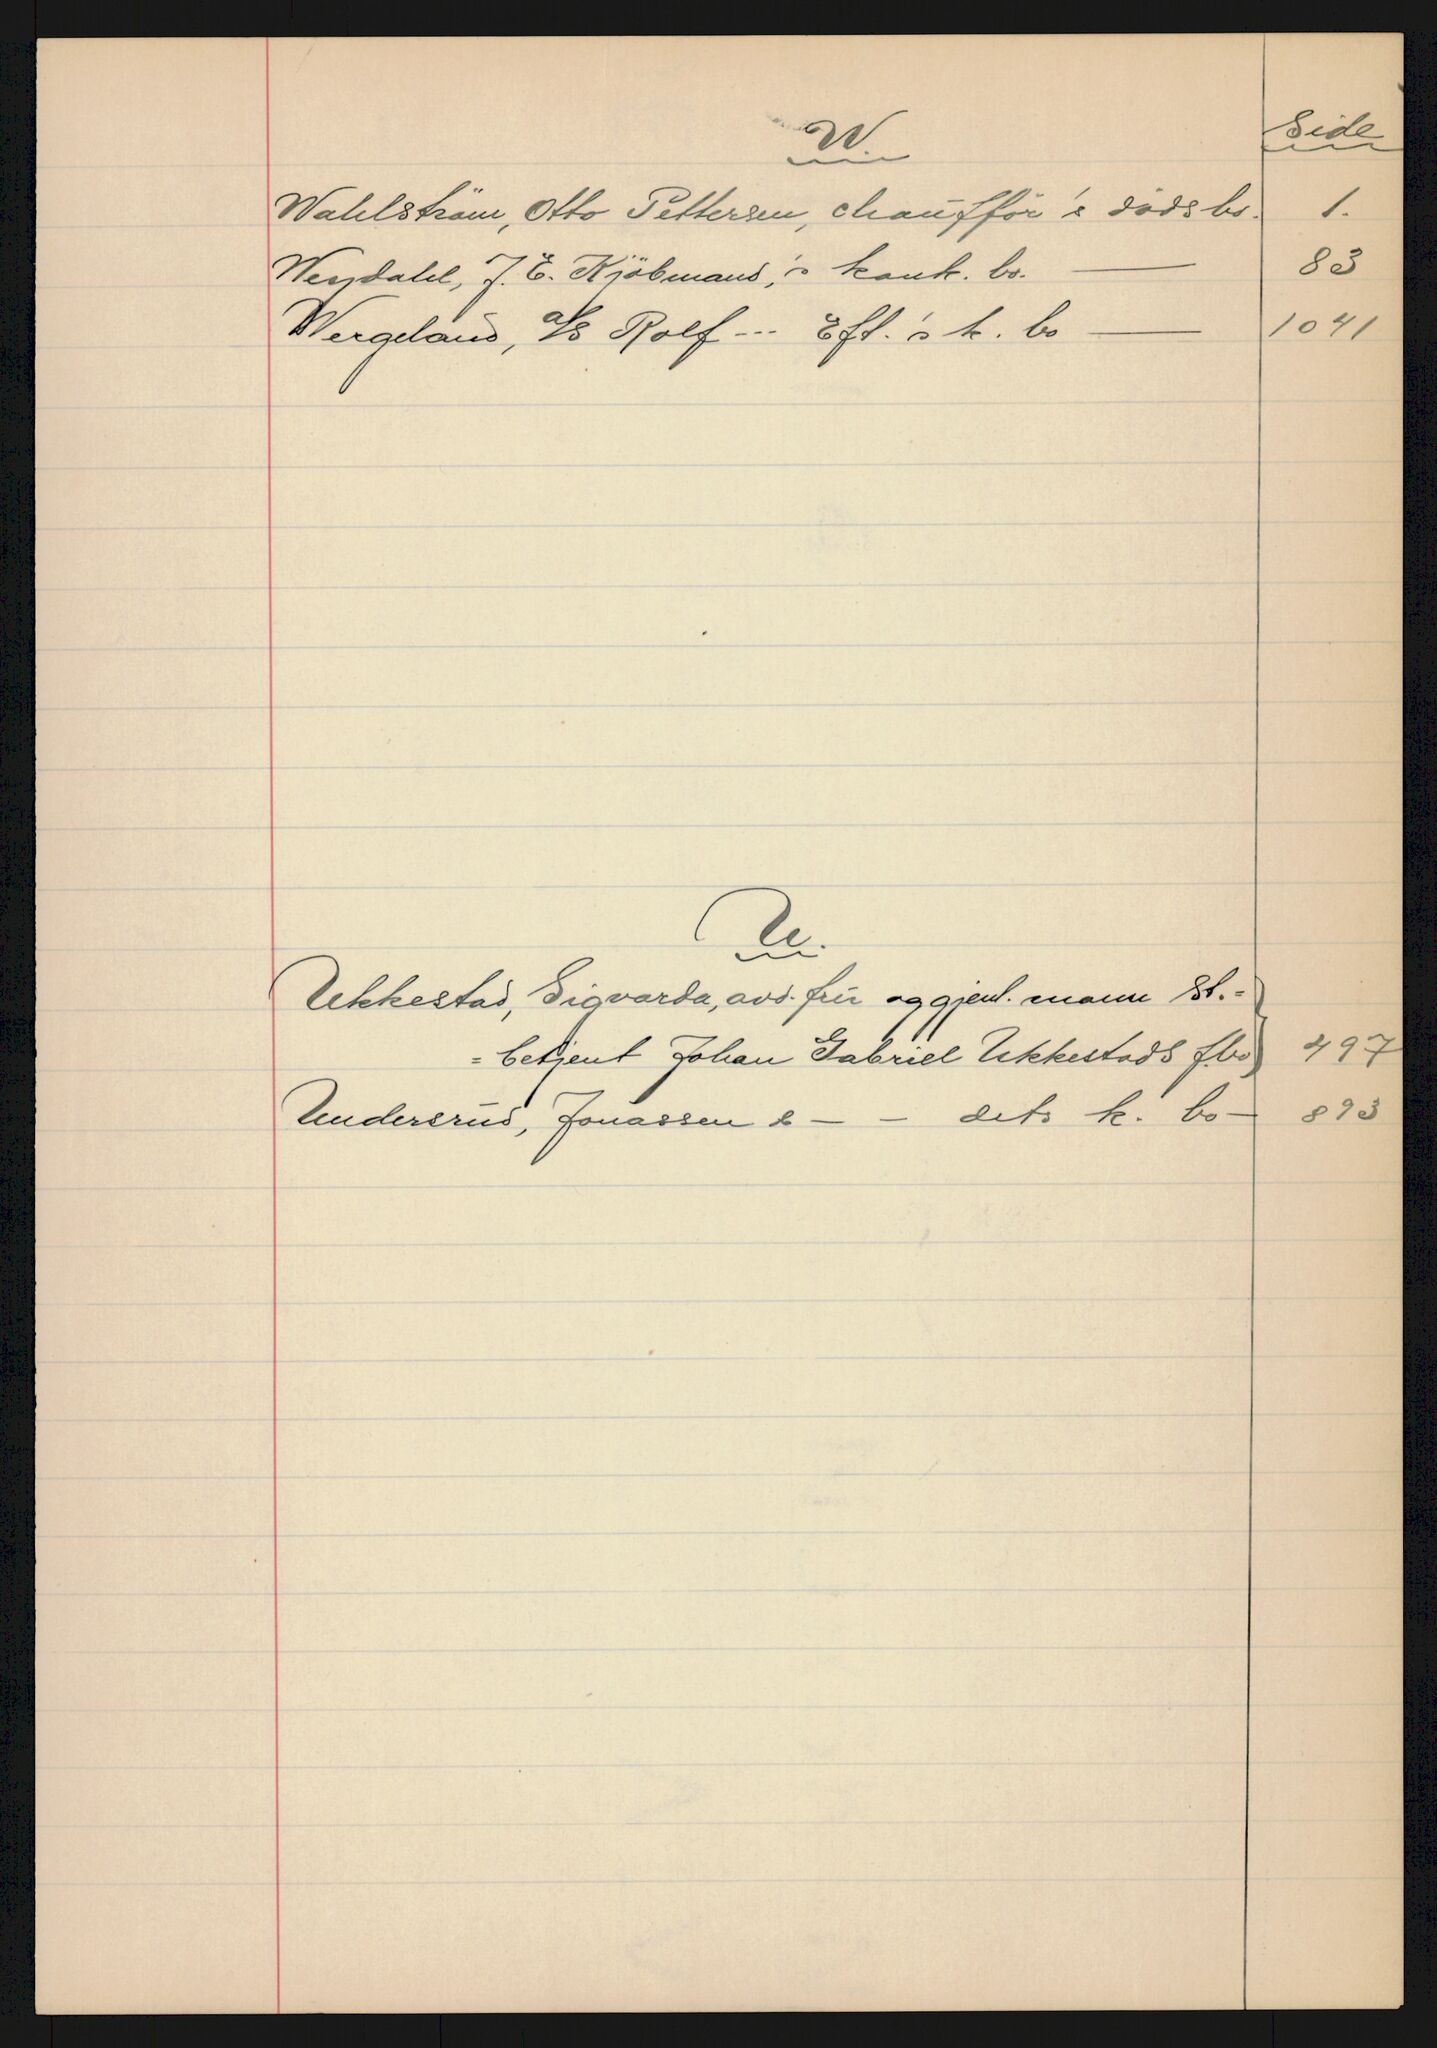 W. Side
Wahlström, Otto Pettersen, chaufför's dödsbo. 1.
Wendahl, J. E. Kjöbmand,'s konk. bo. — 83
Wergeland, A/S Rolf --- Eft.'s k. bo — 1041
U.
Ukkestad, Sigvarda, avd. frü og gjenl. mann St.-
- betjent Johan Gabriel Ukkestads f.bo 497
Undersrud, Jonassen & — — dets k. bo — 893